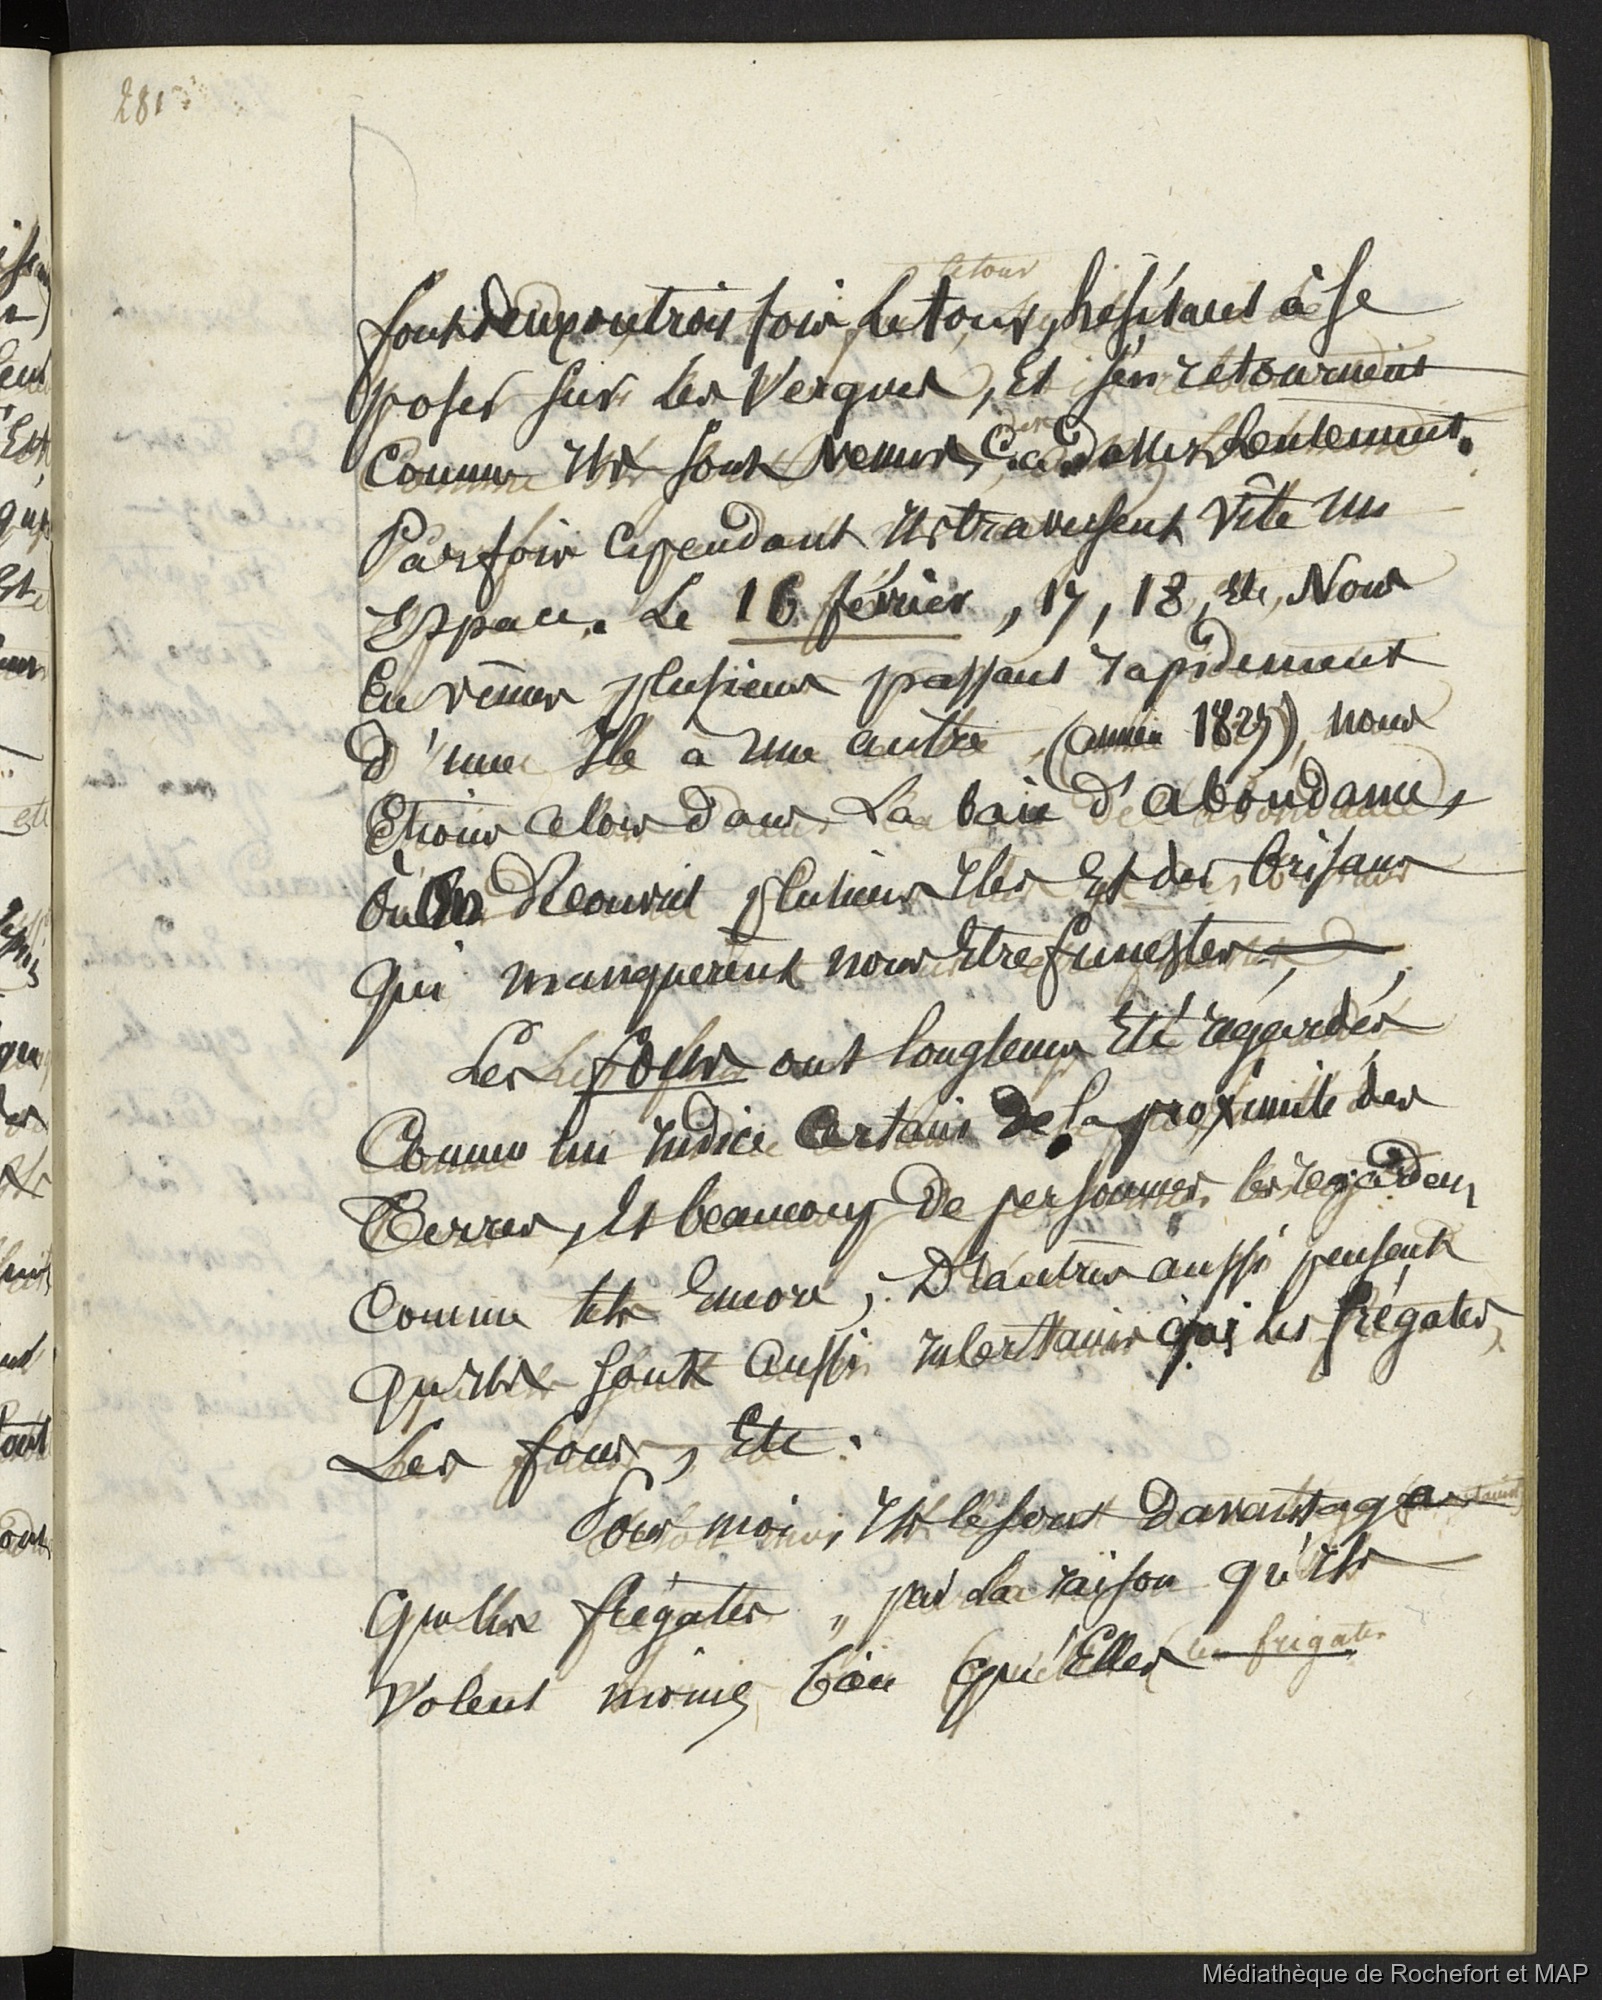 281
letour
font deux ou trois fois le tour, hésitant à se
poser sur les vergues, et s'en retournent
comme ils sont venus, c. a. d. assez lentement.
Parfois cependant ils traversent vite un
Espace. Le 16 février, 17, 18, etc, Nous
En vîmes plusieurs passant rapidement
d'une Ile à une autre (année 1827), nous
Etions alors dans La baie d'abondance,
où On découvrit plusieurs Iles Et des brisans
qui manquèrent nous Etre funestes
Les fous ont longtems Eté regardés
Comme un Indice Certain de la proximité des
Terres, Et beaucoup de personnes les regardent
Comme tels Encore ; D'autres aussi pensent
qu'ils sont aussi Incertains que les frégates,
Les fous, Etc.
Pour moi, Ils le sont davantage
que les frégates, par la raison qu'ils
Volent moins bien qu'Elles les frégates
Médiathèque de Rochefort et MAP